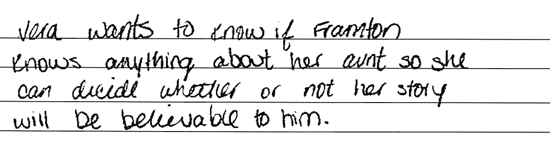 Vera wants to know if Framton
knows anything about her aunt so she
can decide whether or not her story
will be believable to him.